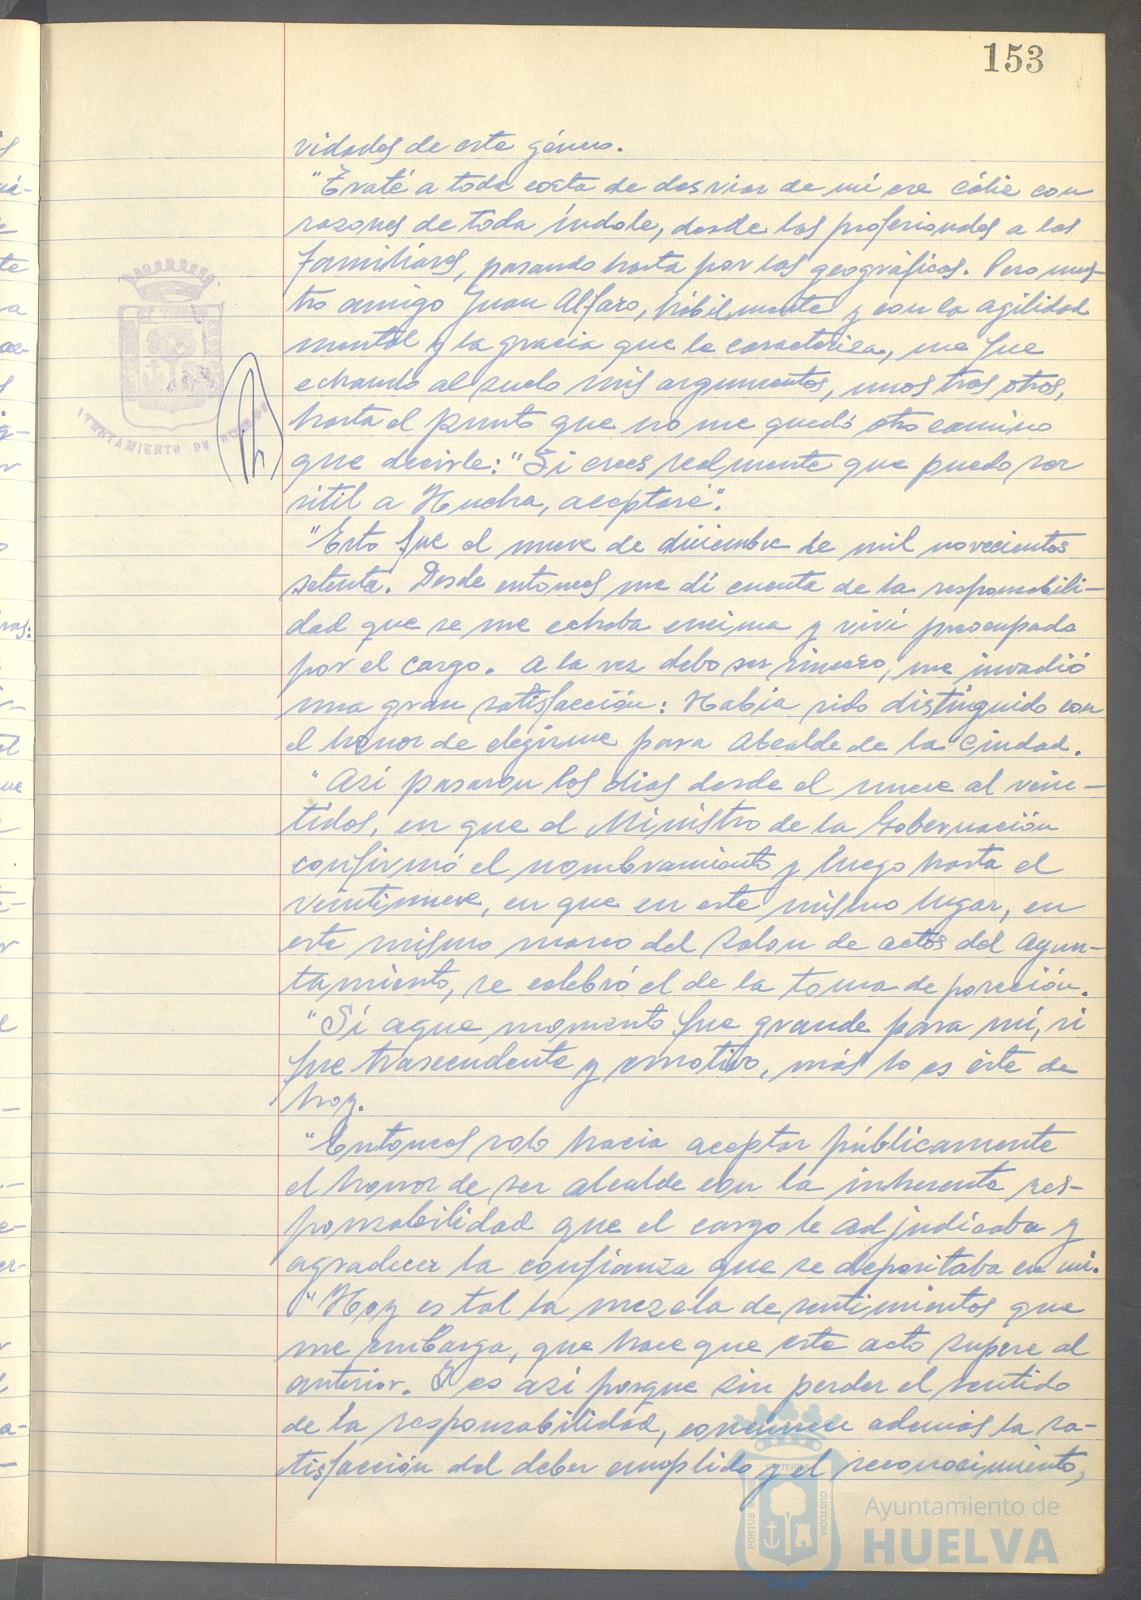 153
vidades de este género.
"Traté a toda costa de desviar de mí ese cáliz con
razones de toda índole, desde las profesionales a las
familiares, pasando hasta por las geográficas. Pero nues-
tro amigo Juan Alfaro, hábilmente y con la agilidad
mental y la gracia que le caracteriza, me fue
echando al suelo mis argumentos, unos tras otros,
hasta el punto que no me quedó otro camino
que decirle: "Si crees realmente que puedo ser
útil a Huelva, aceptaré".
"Esto fue el nueve de diciembre de mil novecientos
setenta. Desde entonces me dí cuenta de la responsabili-
dad que se me echaba encima y viví preocupado
por el cargo. A la vez debo ser sincero, me invadió
una gran satisfacción: Había sido distinguido con
el honor de elegirme para Alcalde de la Ciudad.
"Así pasaron los días desde el nueve al vein-
tidos, en que el Ministro de la Gobernación
confirmó el nombramiento y luego hasta el
veintinueve, en que en este mismo lugar, en
este mismo marco del salón de actos del Ayun-
tamiento, se celebró el de la toma de posesión.
"Si aque momento fue grande para mí, si
fue trascendente y emotivo, más lo es éste de
hoy.
"Entonces solo hacia aceptar públicamente
el honor de ser alcalde con la inherente res-
ponsabilidad que el cargo le adjudicaba y
agradecer la confianza que se depositaba en mi.
"Hoy es tal la mezcla de sentimientos que
me embarga, que hace que este acto supere al
anterior. Y es así porque sin perder el sentido
de la responsabilidad, concurren además la sa-
tisfacción del deber cumplido y el reconocimiento,
AYUNTAMIENTO DE HUELVA
PORTUS MARIS ET TERRAE CUSTODIA
Ayuntamiento de
HUELVA